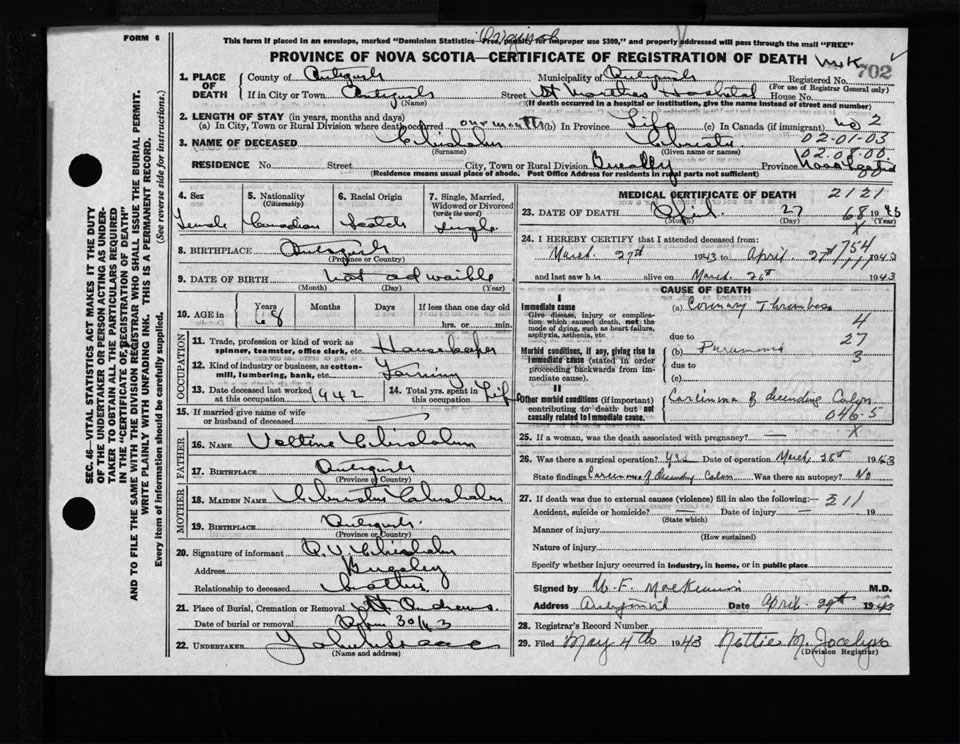 FORM 6
This form if placed in an envelope, marked "Dominion Statistics Free, penalty for improper use $300," and properly addressed will pass through the mail "FREE"
PROVINCE OF NOVA SCOTIA—CERTIFICATE OF REGISTRATION OF DEATH
702
1. PLACE OF DEATH
County of Antigonish Municipality of Antigonish Registered No.
(For use of Registrar General only)
If in City or Town Antigonish Street St Marthas Hospital House No.
(Name) (If death occurred in a hospital or institution, give the name instead of street and number)
2. LENGTH OF STAY (in years, months and days)
(a) In City, Town or Rural Division where death occurred one month (b) In Province Life (c) In Canada (if immigrant) no 2
02-01-03
3. NAME OF DECEASED Chisholm Christy
(Surname) (Given name or names)
02.08.00
RESIDENCE No. Street City, Town or Rural Division Province Nova Scotia
(Residence means usual place of abode. Post Office Address for residents in rural parts not sufficient)
4. Sex
Female
5. Nationality (Citizenship)
Canadian
6. Racial Origin
Scotch
7. Single, Married, Widowed or Divorced (write the word)
Single
8. BIRTHPLACE Antigonish
(Province or Country)
9. DATE OF BIRTH not advaible
(Month) (Day) (Year)
10. AGE in Years Months Days If less than one day old
68 hrs. or min.
OCCUPATION
11. Trade, profession or kind of work as spinner, teamster, office clerk, etc. Housekeeper
12. Kind of industry or business, as cotton-mill, lumbering, bank, etc. Farming
13. Date deceased last worked at this occupation 942
14. Total yrs. spent in this occupation Life
15. If married give name of wife or husband of deceased
FATHER
16. NAME Chisholm
17. BIRTHPLACE Antigonish
(Province or Country)
MOTHER
18. MAIDEN NAME Christy Chisholm
19. BIRTHPLACE Antigonish
(Province or Country)
20. Signature of informant Chisholm
Address
Relationship to deceased Brother
21. Place of Burial, Cremation or Removal St Andrews.
Date of burial or removal 30/43
22. UNDERTAKER
(Name and address)
MEDICAL CERTIFICATE OF DEATH 2121
23. DATE OF DEATH April 27 68 1943
(Month) (Day) (Year)
X
24. I HEREBY CERTIFY that I attended deceased from:
754
March 27th 1943 to April 27th 1943
and last saw h alive on March 26th 1943
CAUSE OF DEATH
Immediate cause
Give disease, injury or complication which caused death, not the mode of dying, such as heart failure, asphyxia, asthenia, etc.
(a) Coronary Thrombosis
4
due to 27
Morbid conditions, if any, giving rise to immediate cause (stated in order proceeding backwards from immediate cause).
(b) Pneumonia 3
due to
(c)
Other morbid conditions (if important) contributing to death but not causally related to immediate cause.
Carcinoma of descending Colon
046-5
X
25. If a woman, was the death associated with pregnancy? —
26. Was there a surgical operation? Yes Date of operation March 28th 1943
State findings Carcinoma of Descending Colon Was there an autopsy? No
27. If death was due to external causes (violence) fill in also the following:— 211
Accident, suicide or homicide? — Date of injury — 19
(State which)
Manner of injury
(How sustained)
Nature of injury
Specify whether injury occurred in industry, in home, or in public place
Signed by M.D.
Address Antigonish Date April 29th 1943
28. Registrar's Record Number
29. Filed May 4th 1943 Nattie M. Jocelyn
(Division Registrar)
SEC. 46—VITAL STATISTICS ACT MAKES IT THE DUTY
OF THE UNDERTAKER OR PERSON ACTING AS UNDER-
TAKER TO OBTAIN ALL THE PARTICULARS REQUIRED
IN THE "CERTIFICATE OF REGISTRATION OF DEATH"
AND TO FILE THE SAME WITH THE DIVISION REGISTRAR WHO SHALL ISSUE THE BURIAL PERMIT.
WRITE PLAINLY WITH UNFADING INK. THIS IS A PERMANENT RECORD.
Every item of information should be carefully supplied. (See reverse side for instructions.)